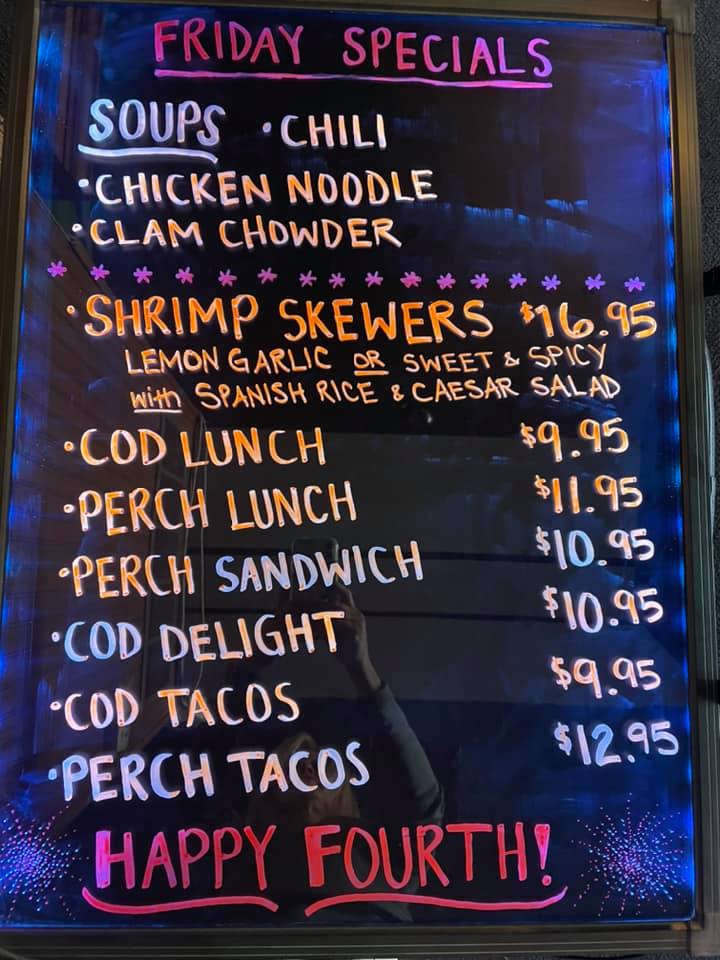 FRIDAY SPECIALS
SOUPS • CHILI
• CHICKEN NOODLE
• CLAM CHOWDER
* * * * * * * * * * * * * * *
• SHRIMP SKEWERS $16.95
LEMON GARLIC OR SWEET & SPICY
with SPANISH RICE & CAESAR SALAD
• COD LUNCH $9.95
• PERCH LUNCH $11.95
• PERCH SANDWICH $10.95
• COD DELIGHT $10.95
• COD TACOS $9.95
• PERCH TACOS $12.95
HAPPY FOURTH!